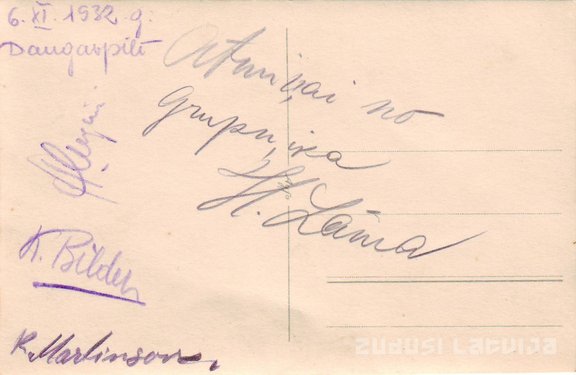 6. XI. 1932. g.
Daugavpilī
Atmiņai no
grupu,ika
H. Lāma
K. Bilder
R. Martinsons
ZUDUSI LATVIJA